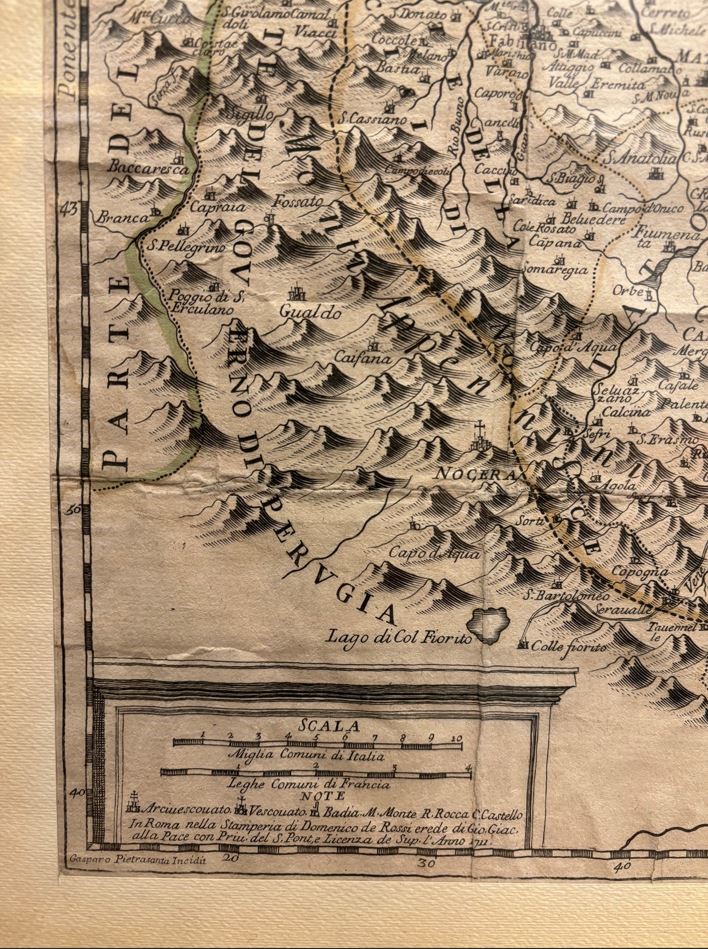 Ponente
PARTE DEL
S. Girolamo Camal
doli
Viacci
S. Donato
Colle
Cerreto
S. Michele
Capucini
Fabriano
Mte. Cucco
Costac
ciaro
Coccole
Bastia
Varano
S. M. Mad.
Attiggio
Valle
Eremita
Collamato
Sigillo
S. Cassiano
Rio Buono
Caporo
Cancel
Campodiecoli
Caccia
S. Anatolia
S. Biagio
Baccaresca
TE DEL GOVERNO DI PERVGIA
Monta Appennini
43
Branca
Capraia
Fossato
S. Pellegrino
Saridica
Campo d'Onico
Beluedere
Cole Rosato
Capana
Fiumena
ta
Somaregia
Orbe
Poggio di S.
Erculano
Gualdo
Caifana
Capo d'Aqua
Seluaz
zano
Casale
Calcina
Palente
Sefri
S. Erasmo
NOCERA
Agola
50
Sorti
Capo d'Aqua
Capogna
S. Bartolomeo
Seraualle
Tauernel
le
Lago di Col Fiorito
Colle fiorito
SCALA
1 2 3 4 5 6 7 8 9 10
Miglia Comuni di Italia
1 2 3 4
Leghe Comuni di Francia
NOTE
40
Arciuescouato. Vescouato. Badia. M. Monte R. Rocca C. Castello
In Roma nella Stamperia di Domenico de Rossi erede di Gio. Giac.
alla Pace con Priu. del S. Pont. e Licenza de Sup. l'Anno 1711
Gasparo Pietrasanta Incidit
20 30 40